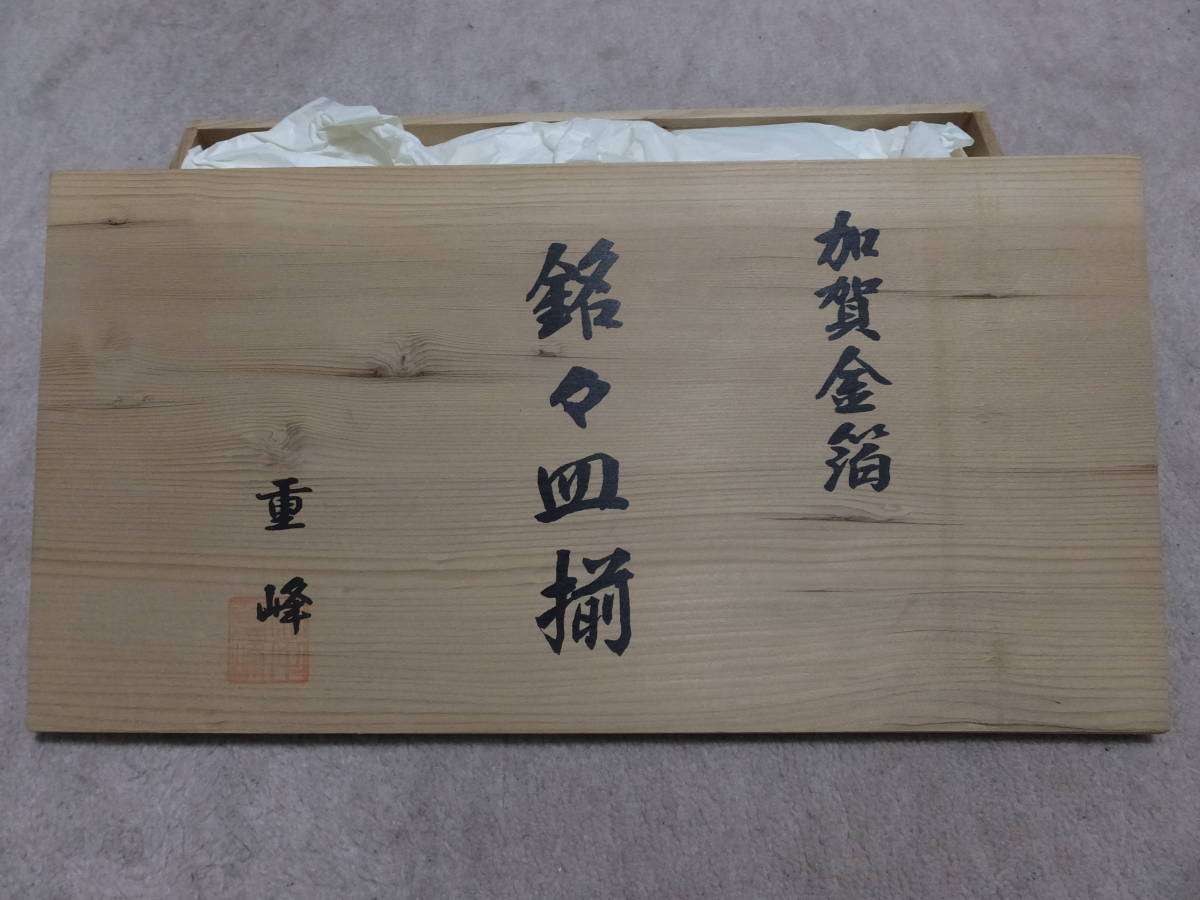 加賀金箔
銘々皿揃
重峰